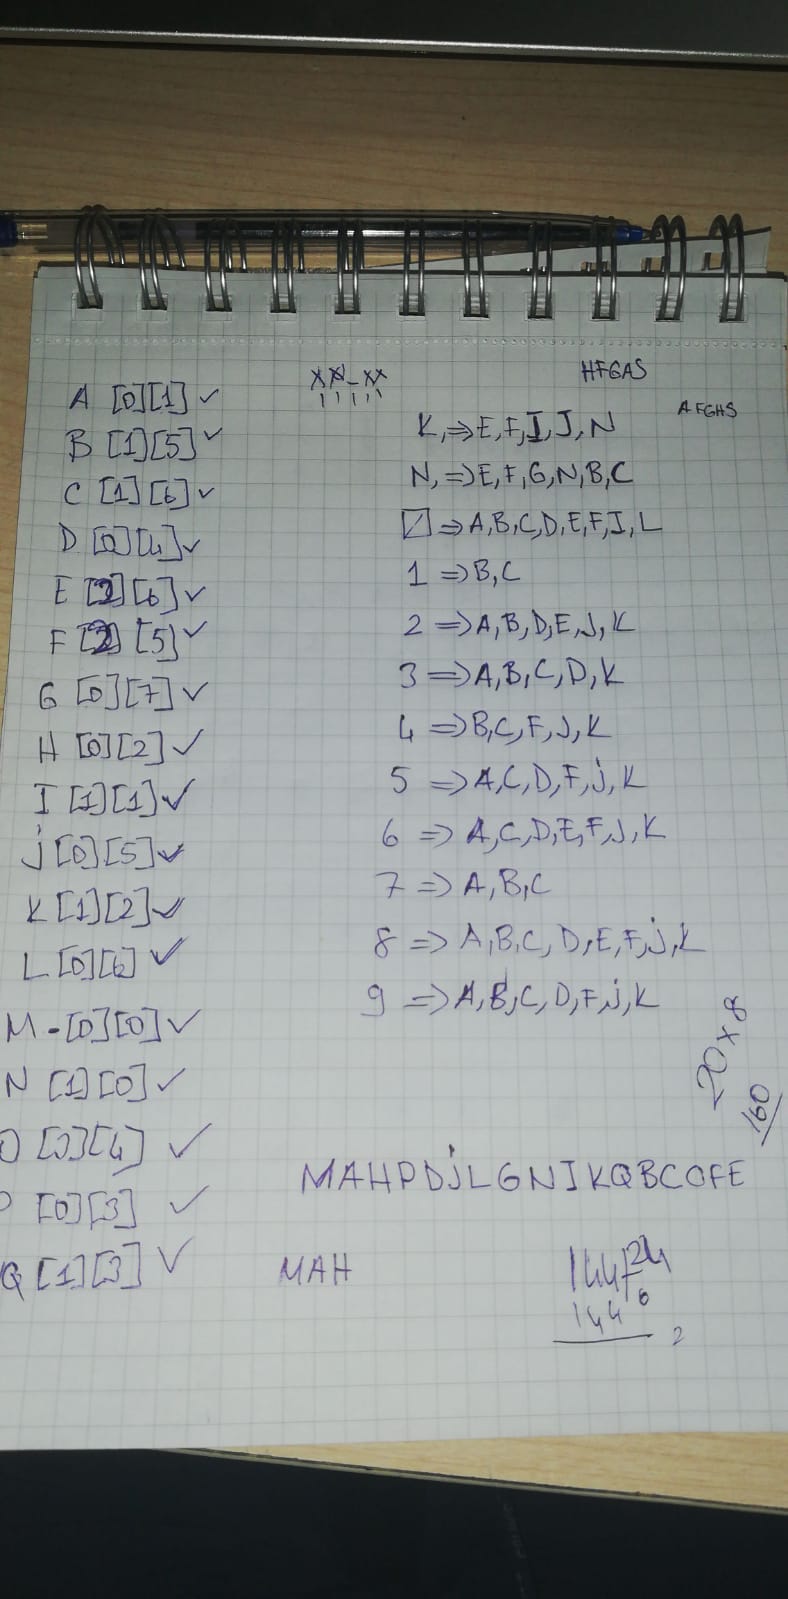 A [0][1] ✓
B [1][5] ✓
C [1][6] ✓
D [0][4] ✓
E [2][6] ✓
F [2][5] ✓
G [0][7] ✓
H [0][2] ✓
I [1][1] ✓
j [0][5] ✓
K [1][2] ✓
L [0][6] ✓
M - [0][0] ✓
N [1][0] ✓
O [2][4] ✓
P [0][3] ✓
Q [1][3] ✓
XX-XX
HFGAS
AFGHS
K, => E, F, I, J, N
N, => E, F, G, N, B, C
=> A, B, C, D, E, F, I, L
1 => B, C
2 => A, B, D, E, J, K
3 => A, B, C, D, K
4 => B, C, F, J, K
5 => A, C, D, F, j, K
6 => A, C, D, E, F, J, K
7 => A, B, C
8 => A, B, C, D, E, F, j, K
9 => A, B, C, D, F, j, K
20 x 8
160
MAHPDjLGNIKQBCOFE
MAH
144 24
144 6
2